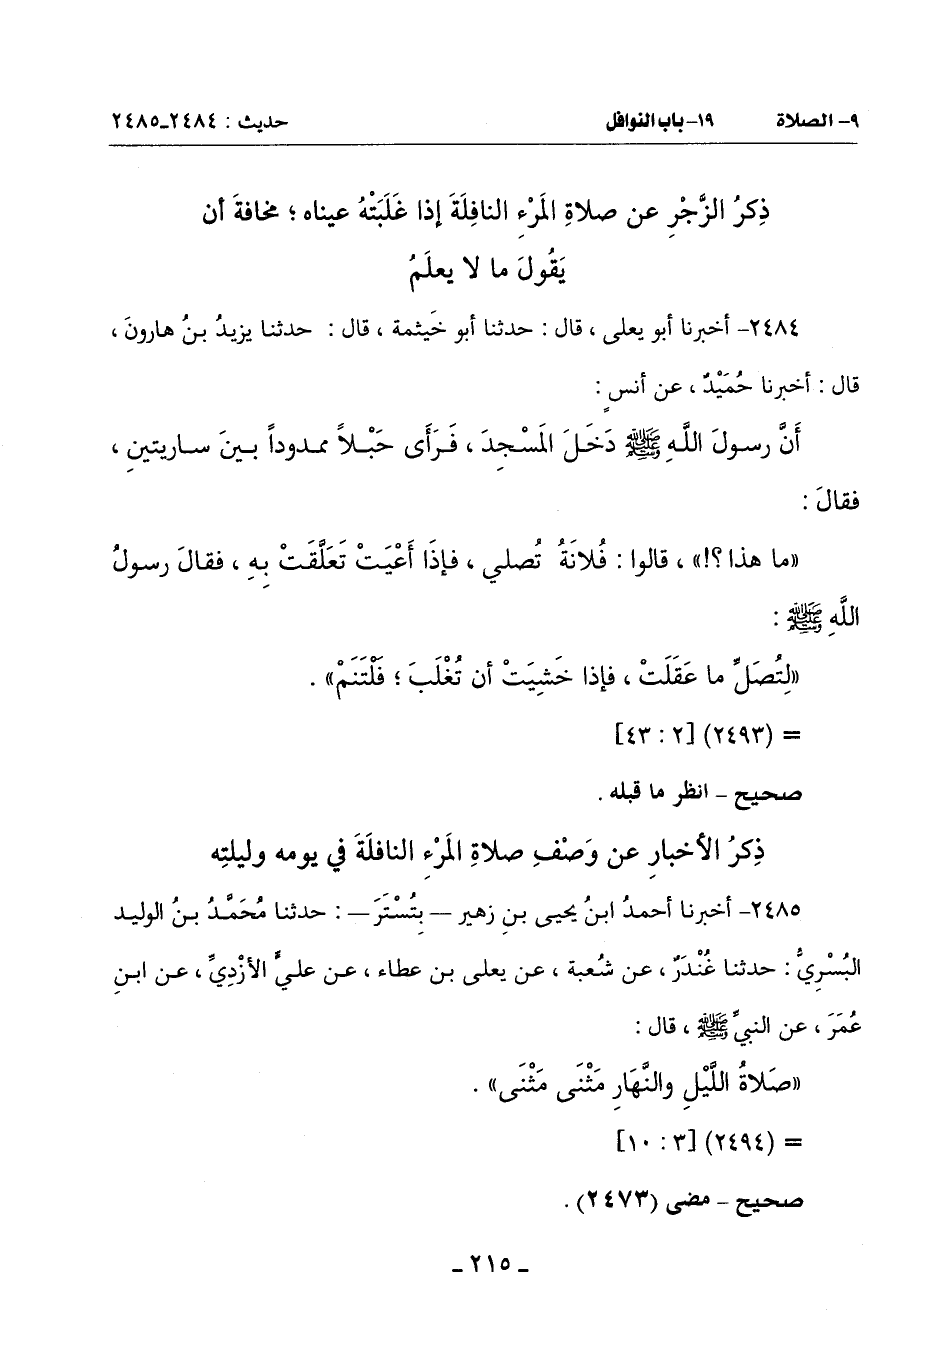 ٩- الصلاة ١٩- باب النوافل حديث : ٢٤٨٤-٢٤٨٥
ذِكرُ الزَّجْرِ عن صلاةِ المَرْءِ النافِلَةَ إذا غَلَبَتْهُ عيناه ؛ مخافةَ أن
يَقُولَ ما لا يعلَمُ
٢٤٨٤- أخبرنا أبو يعلى ، قال : حدثنا أبو خَيثمة ، قال : حدثنا يزيدُ بنُ هارونَ ،
قال : أخبرنا حُمَيْدٌ ، عن أنسٍ :
أَنَّ رسولَ اللَّهِ ﷺ دَخَلَ المَسْجِدَ ، فَرَأَى حَبْلاً ممدوداً بينَ ساريتينِ ،
فقالَ :
«ما هذا ؟!» ، قالوا : فُلانَةُ تُصلي ، فإذَا أَعْيَتْ تَعَلَّقَتْ بِهِ ، فقالَ رسولُ
اللَّهِ ﷺ :
«لِتُصَلِّ ما عَقَلَتْ ، فإذا خَشِيَتْ أن تُغْلَبَ ؛ فَلْتَنَمْ» .
= (٢٤٩٣) [٢ : ٤٣]
صحيح - انظر ما قبله .
ذِكرُ الأخبارِ عن وَصْفِ صلاةِ المَرْءِ النافلَةَ في يومه وليلتِه
٢٤٨٥- أخبرنا أحمدُ ابنُ يحيى بنِ زهير — بِتُسْتَرَ — : حدثنا مُحَمَّدُ بنُ الوليد
البُسْرِيُّ : حدثنا غُنْدَرٌ ، عن شُعبة ، عن يعلى بن عطاء ، عن عليٍّ الأزْدِيِّ ، عن ابنِ
عُمَرَ ، عن النبيِّ ﷺ ، قال :
«صَلاةُ اللَّيْلِ والنَّهَارِ مَثْنَى مَثْنَى» .
= (٢٤٩٤) [٣ : ١٠]
صحيح - مضى (٢٤٧٣) .
- ٢١٥ -